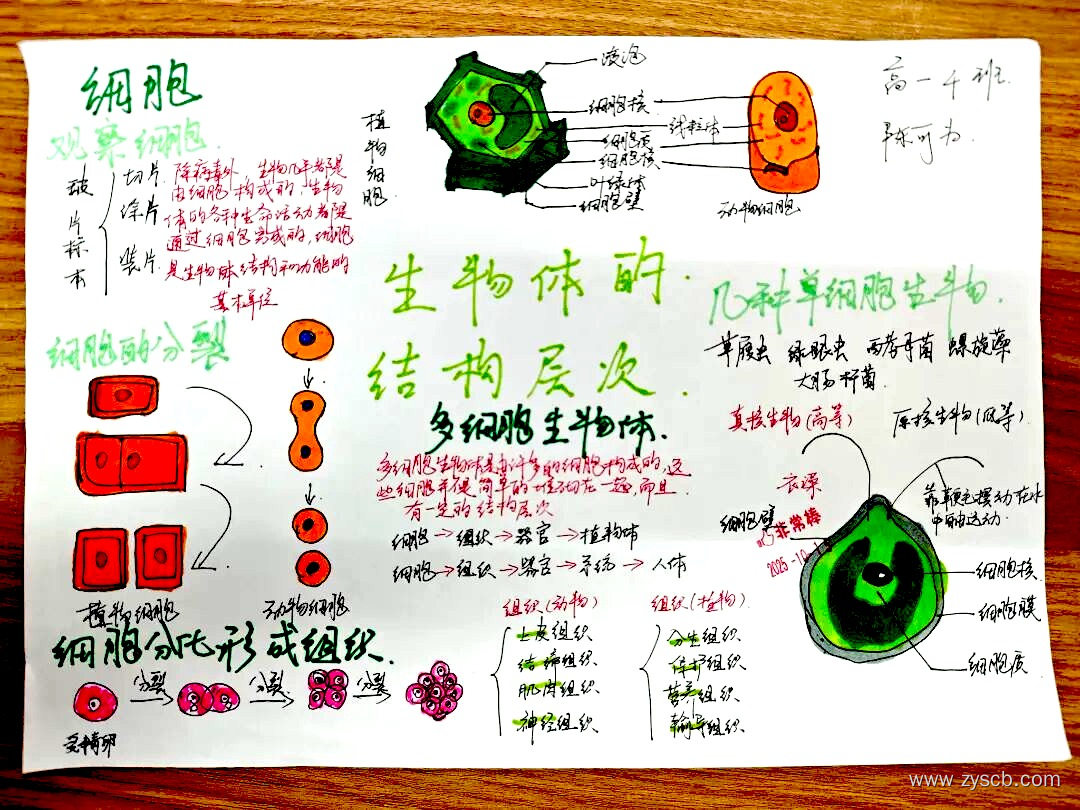 细胞
观察细胞
玻片标本
切片
涂片
装片
除病毒外，生物几乎都是
由细胞构成的，生物
体的各种生命活动都是
通过细胞完成的，细胞
是生物体结构和功能的
基本单位
植物细胞
液泡
细胞核
线粒体
细胞质
细胞膜
叶绿体
细胞壁
动物细胞
高一4班
陈可为
生物体的
结构层次
细胞的分裂
植物细胞
动物细胞
几种单细胞生物
草履虫 绿眼虫 酵母菌 螺旋藻
大肠杆菌
真核生物(高等)
原核生物(低等)
多细胞生物体
多细胞生物体是由许多的细胞构成的，这
些细胞并不是简单的堆砌在一起，而且
有一定的结构层次
细胞→组织→器官→植物体
细胞→组织→器官→系统→人体
衣藻
细胞壁
非常棒
2025-10
靠鞭毛摆动在水
中自由运动
细胞核
细胞膜
细胞质
组织(动物)
上皮组织
结缔组织
肌肉组织
神经组织
组织(植物)
分生组织
保护组织
营养组织
输导组织
细胞分化形成组织
分裂
分裂
分裂
受精卵
www.zyscb.com